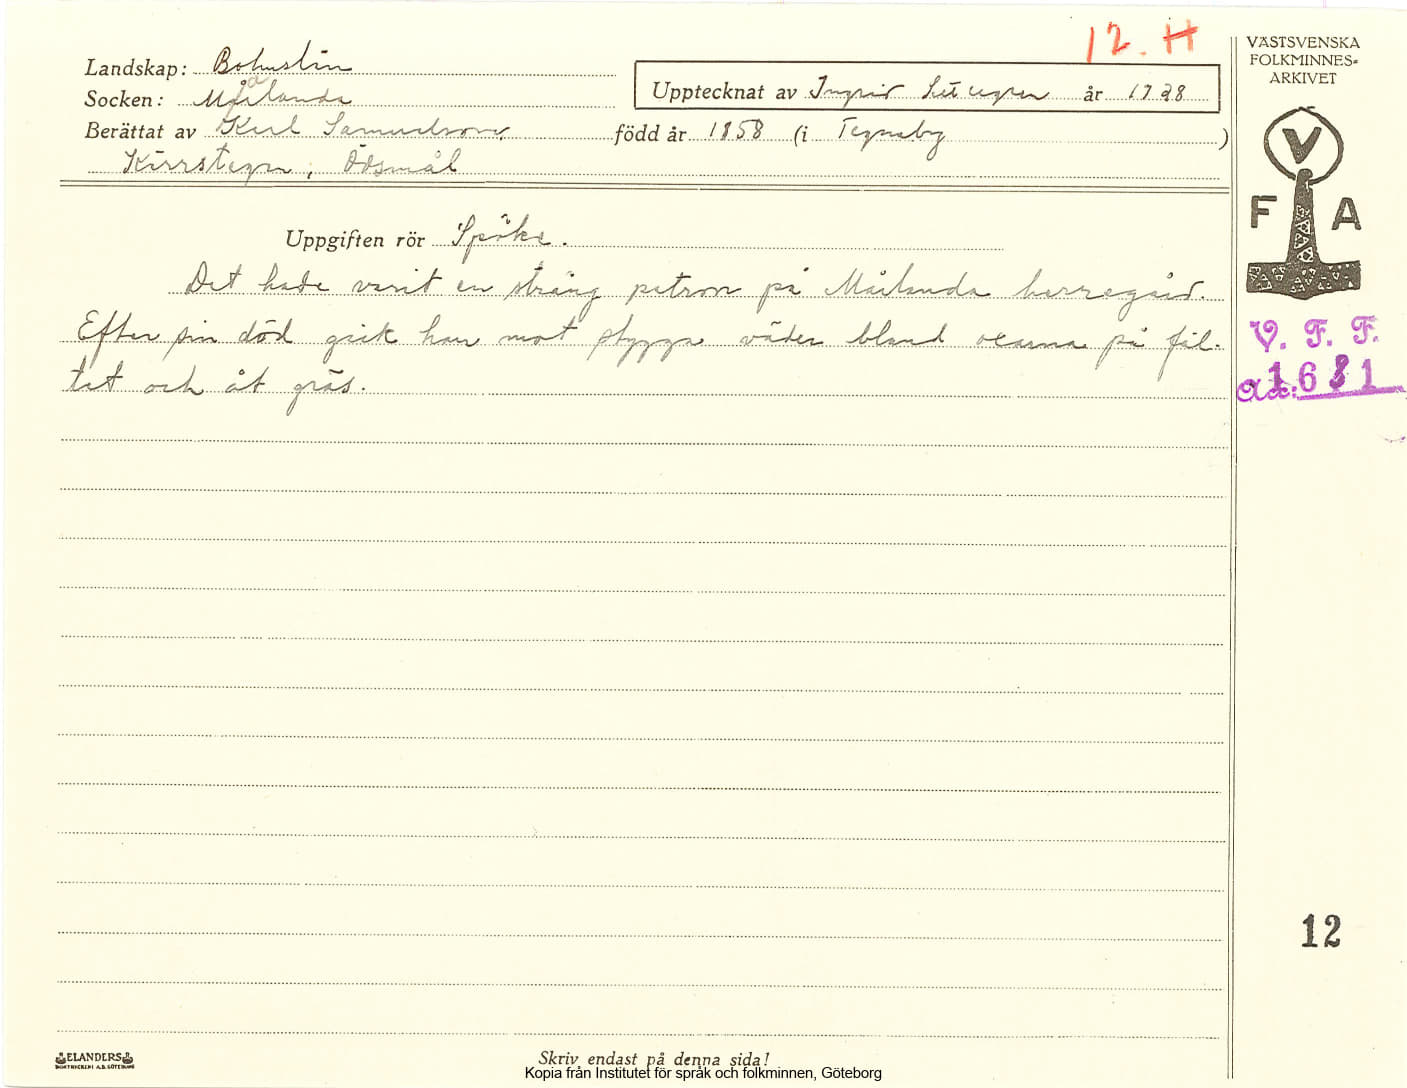 12. H
VÄSTSVENSKA
FOLKMINNES-
ARKIVET
Landskap: Bohuslän
Socken: Mårlanda
Upptecknat av Ingrid år 1928
Berättat av Karl Samuelsson, född år 1858 (i Tegneby )
Kärrstegen, Ödsmål
V
F A
Uppgiften rör Spöke.
Det hade varit en sträng patron på Mårlanda herregård.
Efter sin död gick han mot stygga väder bland oxarna på fäl-
tet och åt gräs.
V. F. F.
acc: 1681
12
ELANDERS
BOKTRYCKERI A.B. GÖTEBORG
Skriv endast på denna sida!
Kopia från Institutet för språk och folkminnen, Göteborg